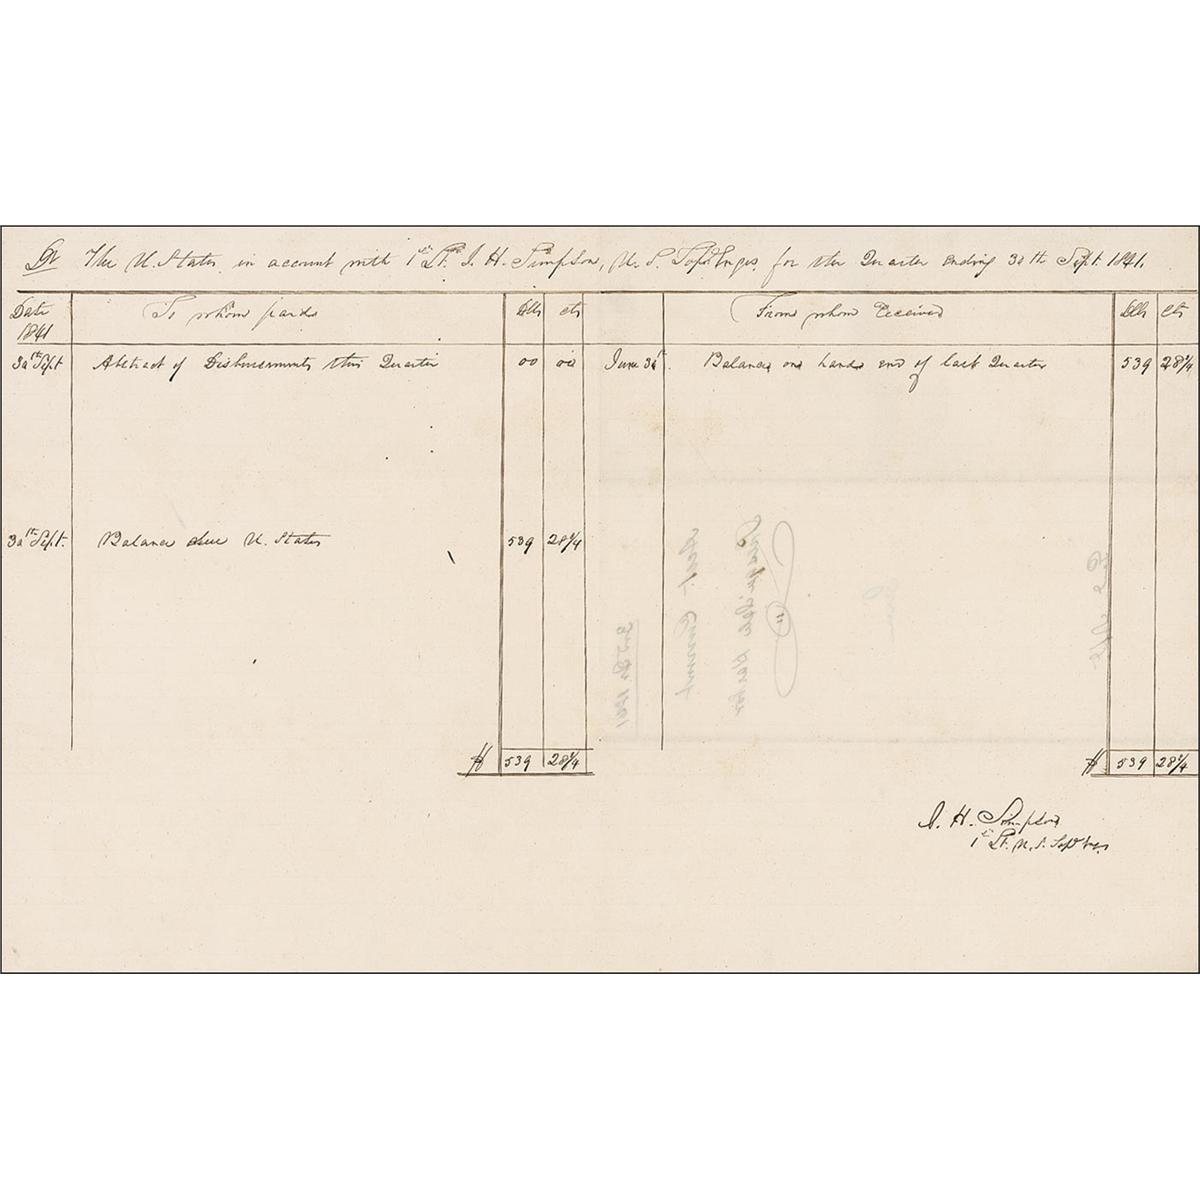 Dr The U. States in account with 1st Lt. J. H. Simpson, U. S. Topl Engrs. for the Quarter ending 30th Sept. 1841.
Date 1841 To whom paid Dlls cts From whom Received Dlls cts
30th Sept Abstract of Disbursements this Quarter 00 00 June 30th. Balance on hand end of last Quarter 539 28 1/4
30th Sept. Balance due U. States 539 28 1/4
$ 539 28 1/4 $ 539 28 1/4
J. H. Simpson
1st Lt. U. S. Topl Engs.